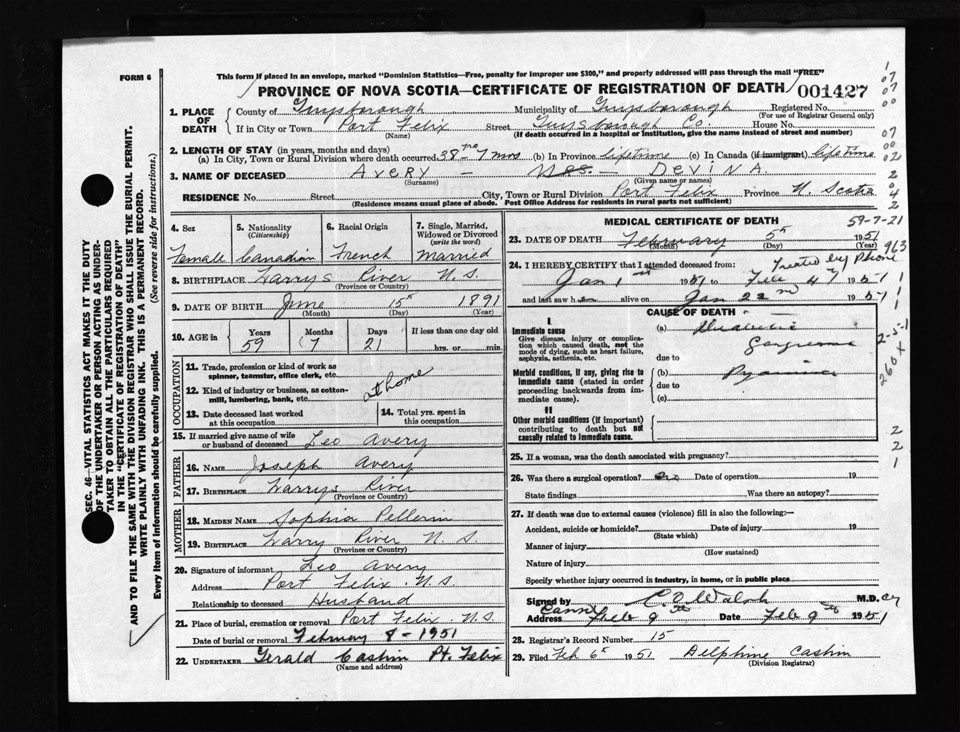 FORM 6
This form if placed in an envelope, marked "Dominion Statistics—Free, penalty for improper use $300," and properly addressed will pass through the mail "FREE"
PROVINCE OF NOVA SCOTIA—CERTIFICATE OF REGISTRATION OF DEATH 001427
1. PLACE OF DEATH
County of Guysborough Municipality of Guysborough Registered No.
(For use of Registrar General only)
If in City or Town Port Felix Street Guysborough Co. House No.
(Name) (If death occurred in a hospital or institution, give the name instead of street and number)
2. LENGTH OF STAY (in years, months and days)
(a) In City, Town or Rural Division where death occurred 38 yrs 7 mos (b) In Province lifetime (c) In Canada (if immigrant) lifetime
3. NAME OF DECEASED AVERY — Mrs. — DEVINA.
(Surname) (Given name or names)
RESIDENCE No. Street City, Town or Rural Division Port Felix Province N. Scotia
(Residence means usual place of abode. Post Office Address for residents in rural parts not sufficient)
4. Sex Female
5. Nationality (Citizenship) Canadian
6. Racial Origin French
7. Single, Married, Widowed or Divorced (write the word) Married
8. BIRTHPLACE Larrys River N.S.
(Province or Country)
9. DATE OF BIRTH June 15th 1891
(Month) (Day) (Year)
10. AGE in Years 59 Months 7 Days 21 If less than one day old hrs. or min.
OCCUPATION
11. Trade, profession or kind of work as spinner, teamster, office clerk, etc.
12. Kind of industry or business, as cotton-mill, lumbering, bank, etc.
at home
13. Date deceased last worked at this occupation
14. Total yrs. spent in this occupation
15. If married give name of wife or husband of deceased Leo Avery
FATHER
16. NAME Joseph Avery
17. BIRTHPLACE Larrys River
(Province or Country)
MOTHER
18. MAIDEN NAME Sophia Pellerin
19. BIRTHPLACE Larry River N.S.
(Province or Country)
20. Signature of informant Leo Avery
Address Port Felix. N.S.
Relationship to deceased Husband
21. Place of burial, cremation or removal Port Felix. N.S.
Date of burial or removal February 8 - 1951
22. UNDERTAKER Gerald Cashin Pt. Felix
(Name and address)
MEDICAL CERTIFICATE OF DEATH
59-7-21
23. DATE OF DEATH February 5th 1951
(Month) (Day) (Year)
963
24. I HEREBY CERTIFY that I attended deceased from: Treated by Phone
Jan 1st 1951 to Feb 4 1951
and last saw her alive on Jan 22nd 1951
CAUSE OF DEATH
I
Immediate cause
Give disease, injury or complication which caused death, not the mode of dying, such as heart failure, asphyxia, asthenia, etc.
(a)
Gangrene
due to
Morbid conditions, if any, giving rise to immediate cause (stated in order proceeding backwards from immediate cause).
(b)
due to
(c)
II
Other morbid conditions (if important) contributing to death but not causally related to immediate cause.
25. If a woman, was the death associated with pregnancy?
26. Was there a surgical operation? Date of operation 19
State findings Was there an autopsy?
27. If death was due to external causes (violence) fill in also the following:—
Accident, suicide or homicide? Date of injury 19
(State which)
Manner of injury
(How sustained)
Nature of injury
Specify whether injury occurred in industry, in home, or in public place
Signed by Walsh M.D.
Address Date Feb 9th 1951
28. Registrar's Record Number 15
29. Filed Feb 6th 1951 Delphine Cashin
(Division Registrar)
SEC. 46—VITAL STATISTICS ACT MAKES IT THE DUTY
OF THE UNDERTAKER OR PERSON ACTING AS UNDER-
TAKER TO OBTAIN ALL THE PARTICULARS REQUIRED
IN THE "CERTIFICATE OF REGISTRATION OF DEATH"
AND TO FILE THE SAME WITH THE DIVISION REGISTRAR WHO SHALL ISSUE THE BURIAL PERMIT.
WRITE PLAINLY WITH UNFADING INK. THIS IS A PERMANENT RECORD.
Every item of information should be carefully supplied. (See reverse side for instructions.)